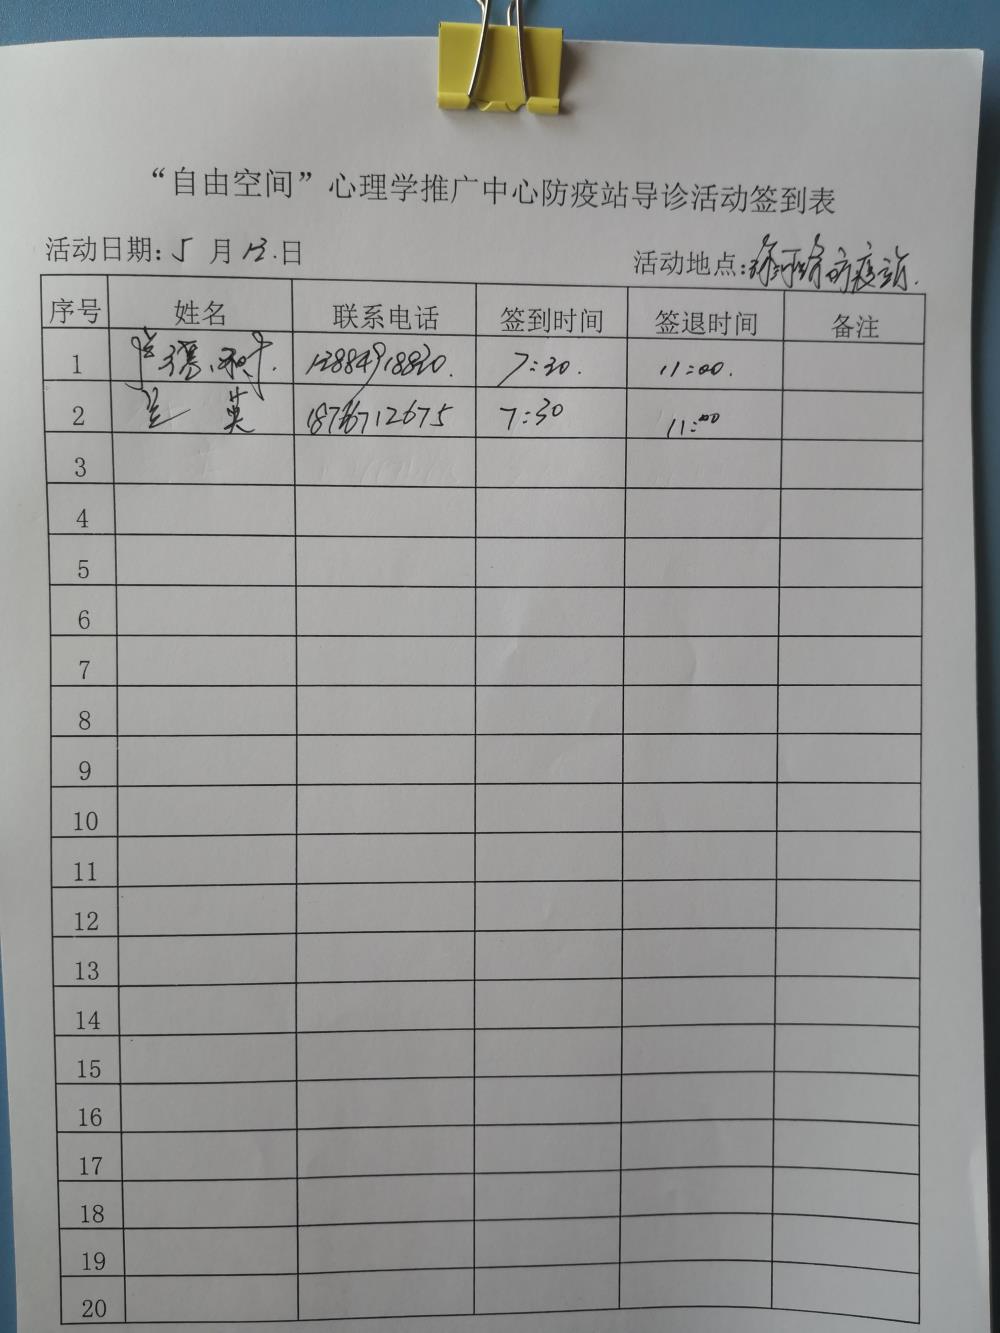 “自由空间”心理学推广中心防疫站导诊活动签到表
活动日期:5月13.日 活动地点:防疫站.
序号 姓名 联系电话 签到时间 签退时间 备注
1 13884918830. 7:30. 11:00.
2 兰英 18766712675 7:30 11:00
3
4
5
6
7
8
9
10
11
12
13
14
15
16
17
18
19
20